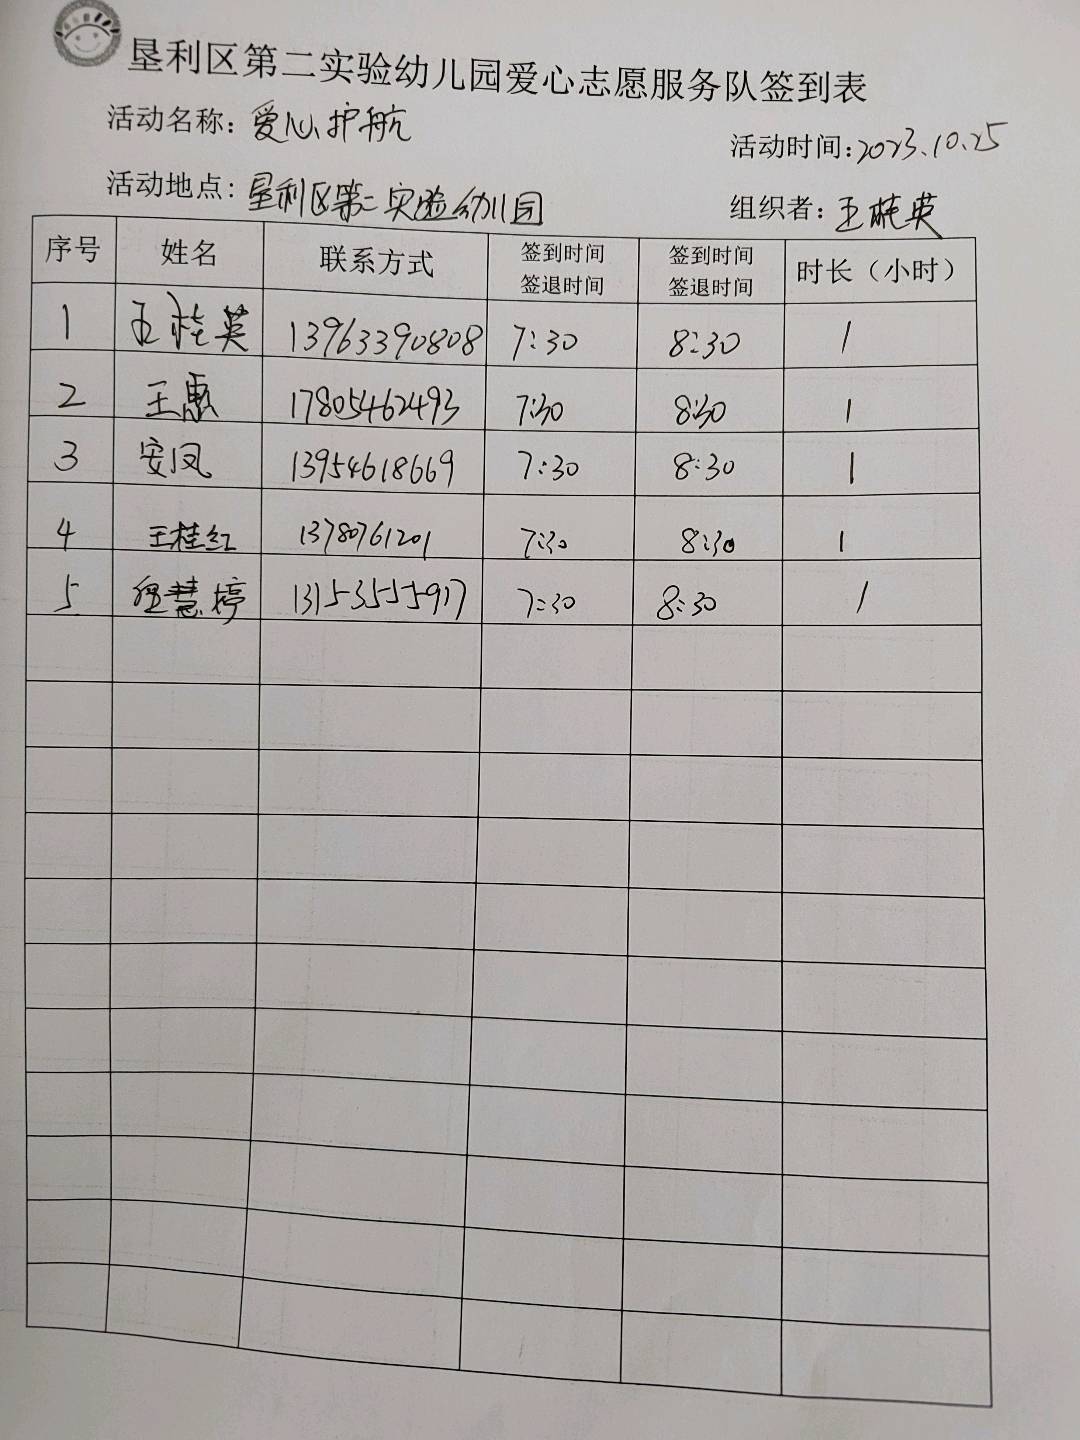 垦利区第二实验幼儿园爱心志愿服务队签到表
活动名称：爱心护航
活动时间：2023.10.25
活动地点：垦利区第二实验幼儿园
组织者：王桂英
序号 姓名 联系方式 签到时间 签退时间 签到时间 签退时间 时长（小时）
1 王桂英 13963390808 7:30 8:30 1
2 王惠 17805462493 7:30 8:30 1
3 安凤 13954618669 7:30 8:30 1
4 王桂红 13780761201 7:30 8:30 1
5 慧婷 13153555917 7:30 8:30 1